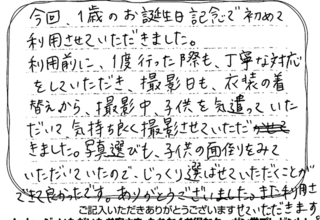 今回、1歳のお誕生日記念で初めて
利用させていただきました。
利用前に、1度行った際も、丁寧な対応
をしていただき、撮影日も、衣装の着
替えから、撮影中、子供を気遣っていた
だいて気持ち良く撮影させていただ
きました。写真選びも、子供の面倒をみて
いただいていたので、じっくり選ばせていただくことが
できて良かったです。ありがとうございました。また利用さ
せていただきます
ご記入いただきありがとうございます